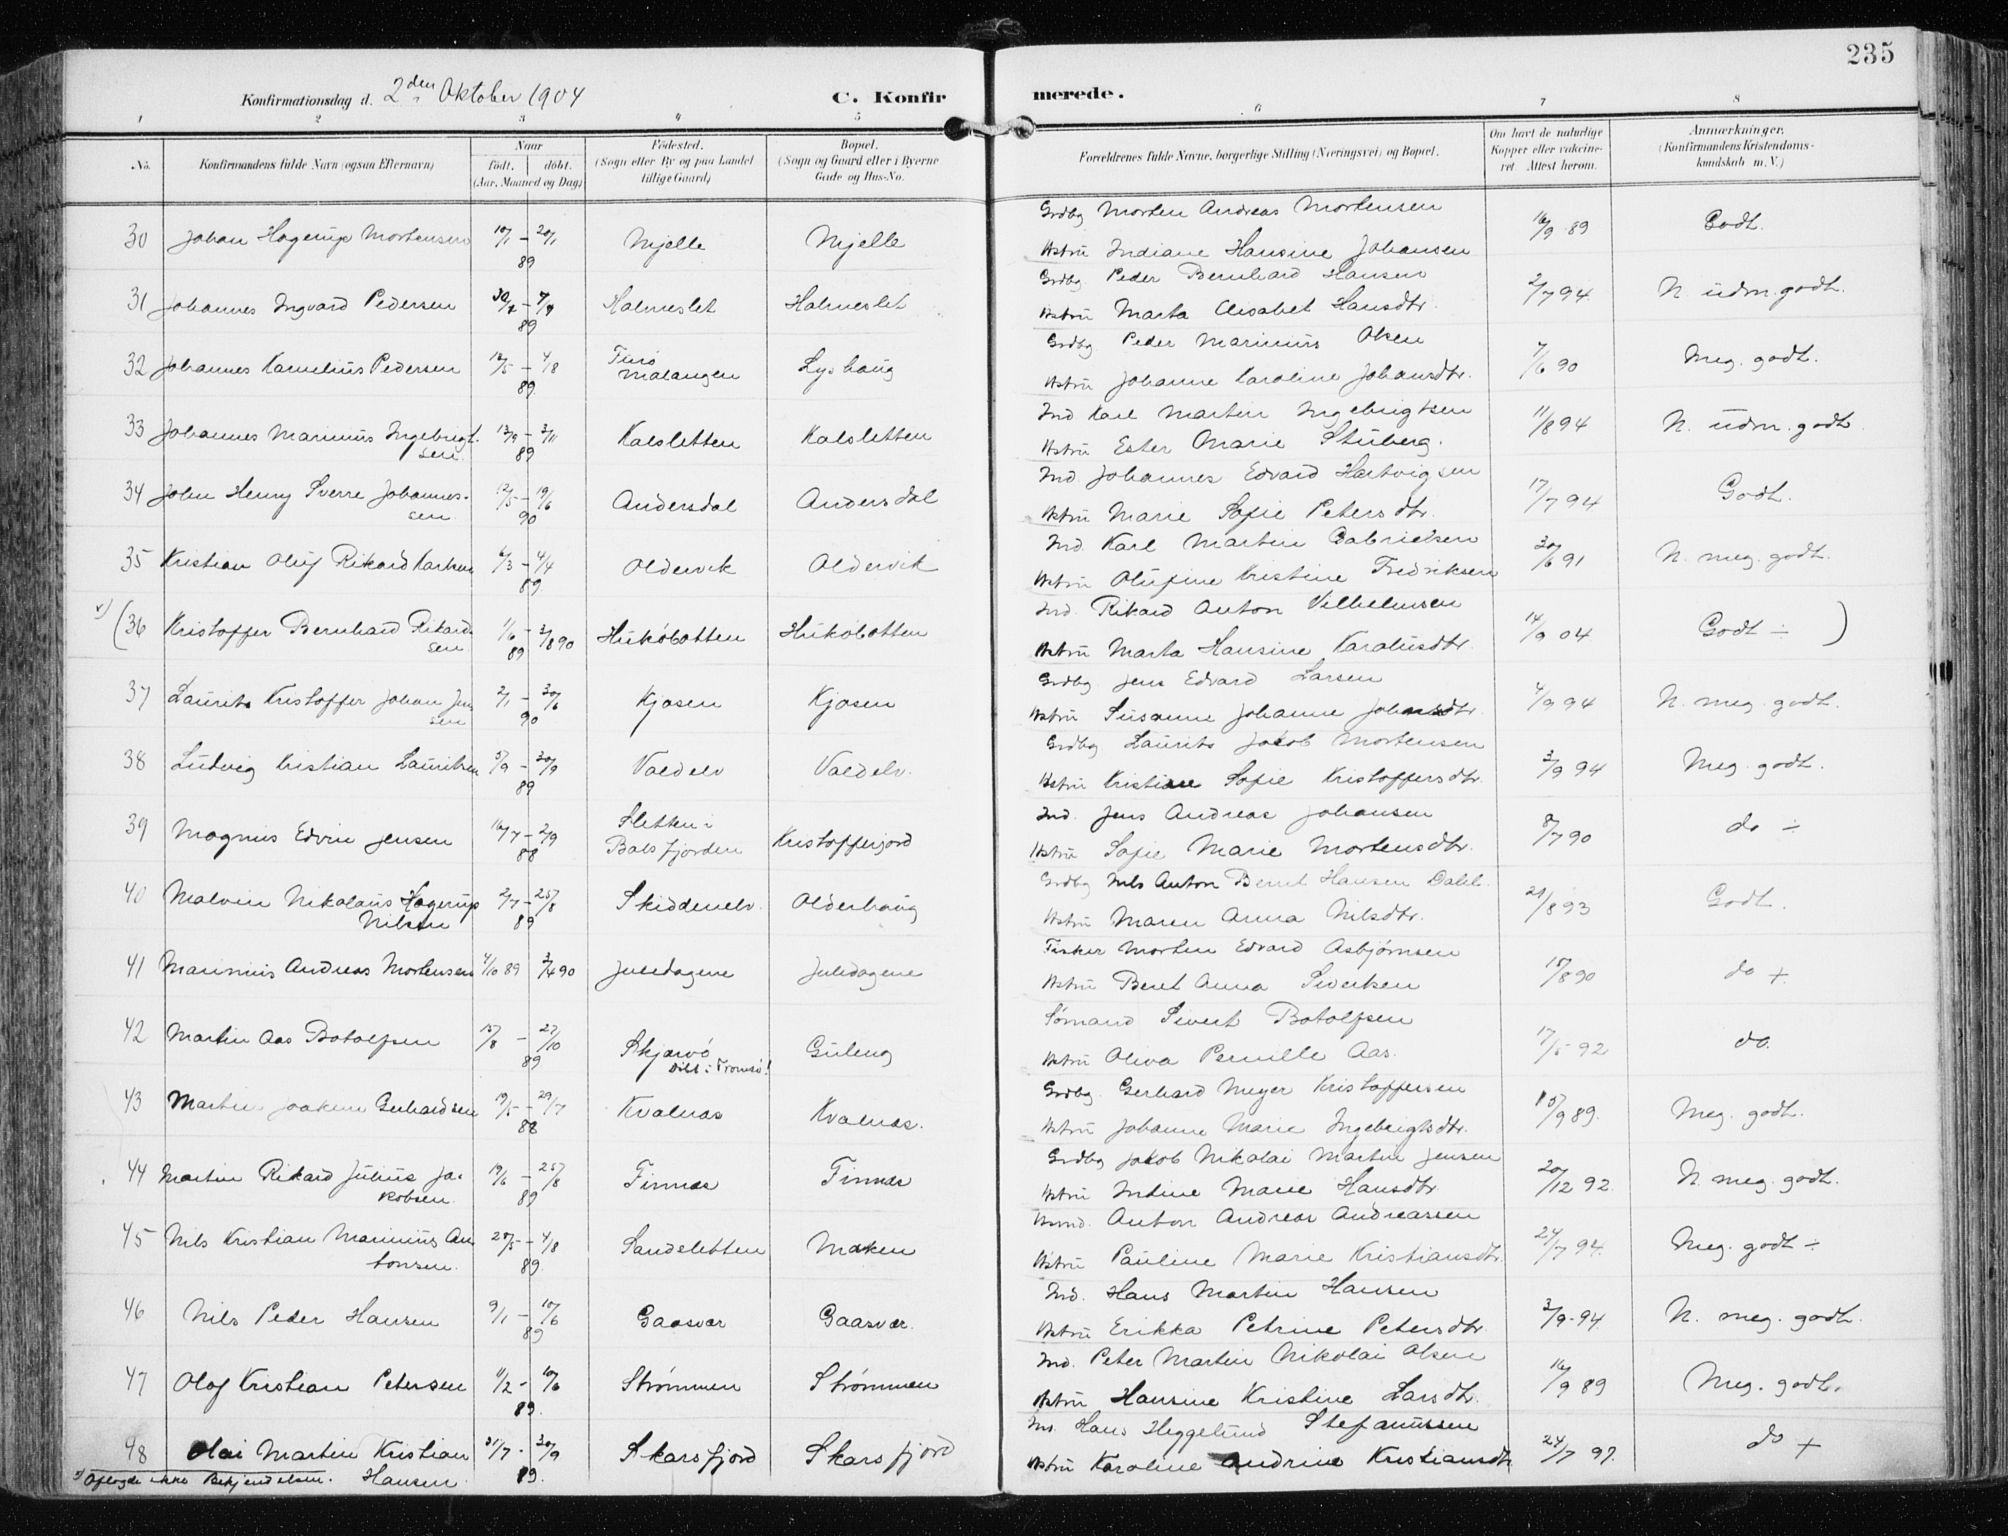 235
Konfirmationsdag d. 2den Oktober 1904 C. Konfirmerede.
1 2 3 4 5 6 7 8
No. Konfirmandens fulde Navn (ogsaa Efternavn) Naar født. døbt. (Aar, Maaned og Dag) Fødested. (Sogn eller By og paa Landet tillige Gaard) Bopæl. (Sogn og Gaard eller i Byerne Gade og Hus-No. Forældrenes fulde Navne, borgerlige Stilling (Næringsvei) og Bopæl. Om havt de naturlige Kopper eller vakcineret Attest herom. Anmærkninger. (Konfirmandens Kristendomskundskab m. V.)
30 Johan Hagerup Mortensen 10/1 – 20/1 89 Mjelle Mjelle Grdbg Morten Andreas Mortensen 16/9 89 Godt.
Hstru Indiane Hansine Johansen
31 Johannes Ingvard Pedersen 89 Halmeslet Halmeslet Grdbg Peder Bernhard Hansen 2/7 94 N. udm. godt.
Hstru Marta Elisabet Hansdtr.
32 Johannes Kornelius Pedersen 12/5 – 4/8 89 Malangen Lyshaug Grdbg Peder Marinius Olsen 7/6 90 Meg. godt.
Hstru Johanne Karoline Johansdtr.
33 Johannes Marinius Ingebrigtsen 13/9 – 3/11 89 Kalsletten Kalsletten Ind Karl Martin Ingebrigtsen 11/8 94 N. udm. godt
Hstru Ester Marie Stuberg.
34 John Henry Sverre Johannessen 12/5 – 19/6 90 Andersdal Andersdal Ind. Johannes Edvard Hartvigsen 17/7 94 Godt.
Hstru Marie Sofie Petersdtr.
35 Kristian Oluf Rikard Karlsen 6/3 – 4/4 89 Oldervik Oldervik Ind. Karl Martin Gabrielsen 30/6 91 N. meg. godt.
Hstru Olufine Kristine Fredriksen
v) (36 Kristoffer Bernhard Rikardsen 1/6 89 – 3/8 90 Hukobotten Hukobotten Ind. Rikard Anton Vilhelmsen 14/9 04 Godt ÷ )
Hstru Marta Hansine Karolusdtr.
37 Laurits Kristoffer Johan Jensen 2/1 – 30/6 90 Kjosen Kjosen Grdbg. Jens Edvard Larsen 4/9 94 N. meg. godt.
Hstru Susanne Johanne Johansdtr.
38 Ludvig Kristian Lauritsen 5/9 – 30/9 89 Valdelv Valdelv. Grdbg Laurits Jakob Mortensen 3/9 94 Meg. godt.
Hstru Kristine Sofie Kristoffersdtr.
39 Magnus Edvin Jensen 16/7 – 2/9 88 Sletten i Balsfjorden Kristofferjord Ind. Jens Andreas Johansen 8/7 90 do ÷
Hstru Sofie Marie Mortensdtr.
40 Malvin Nikolaus Hagerup Nilsen 2/7 – 25/8 89 Skiddenelv. Olderhaug Grdbg Nils Anton Bernt Hansen Dahl. 29/8 93 Godt.
Hstru Maren Anna Nilsdtr.
41 Marinius Andreas Mortensen 4/10 89 3/4 90 Juledagene Juledagene Fisker Morten Edvard Asbjørnsen 15/8 90 do +
Hstru Beret Anna Sivertsen
42 Martin Aas Botolfsen 15/8 – 27/10 89 Skjærvö Döbt i Tromsö! Guleng Sömand Sivert Botolfsen 17/5 92 do.
Hstru Oliva Pernille Aas.
43 Martin Joakim Gerhardsen 19/5 – 29/7 88 Kvalnæs Kvalnæs. Grdbg. Gerhard Meyer Kristoffersen 15/9 89. Meg. godt.
Hstru Johanne Marie Ingebrigtsdtr.
44 Martin Rikard Julius Jakobsen 19/6 – 25/8 89 Finnæs Finnæs Grdbg Jakob Nikolai Martin Jensen 20/12 92. N. meg. godt.
Hstru Indine Marie Hansdtr.
45 Nils Kristian Marinius Antonsen. 28/5 – 4/8 89. Sandsletten Moen Anton Andreas Andreassen 27/7 94. Meg. godt ÷
Hstru Pauline Marie Kristiansdtr.
46 Nils Peder Hansen 9/1 – 10/6 89 Gaasvær Gaasvær. Ind. Hans Martin Hansen 3/9 94. N. meg. godt.
Hstru Erikka Petrine Petersdtr.
47 Olaf Kristian Petersen 11/2 – 10/6 89. Strømmen Strømmen Ind. Peter Martin Nikolai Olsen 16/9 89 Meg. godt.
Hstru Hansine Kristine Larsdtr.
48 Olai Martin Kristian Hansen. 31/7 – 30/9 89. Skarsfjord Skarsfjord Ins. Hans Heggelund Stefanussen 24/7 97. do +
Hstru Karoline Andrine Kristiansdtr
v) Aflagde ikke Bekjendelsen.